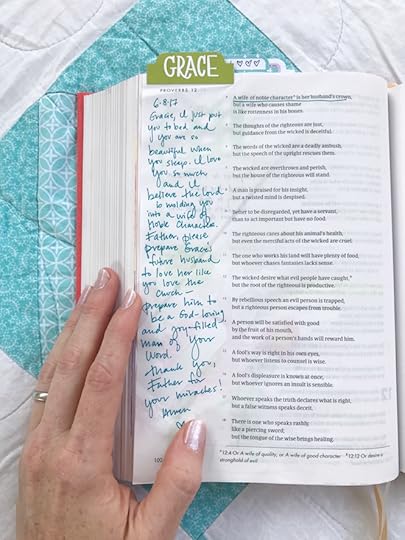 GRACE
PROVERBS 12
6.8.17
Grace, I just put
you to bed and
you are so
beautiful when
you sleep. I love
you so much
and I
believe the Lord
is molding you
into a wife of
Noble Character.
Father, please
prepare Grace's
future husband
to love her like
you love the
Church—
prepare him to
be a God-loving
and joy-filled
man of your
Word.
Thank you,
Father for
your miracles!
Amen
4 A wife of noble character ᵃ is her husband's crown,
but a wife who causes shame
is like rottenness in his bones.
5 The thoughts of the righteous are just,
but guidance from the wicked is deceitful.
6 The words of the wicked are a deadly ambush,
but the speech of the upright rescues them.
7 The wicked are overthrown and perish,
but the house of the righteous will stand.
8 A man is praised for his insight,
but a twisted mind is despised.
9 Better to be disregarded, yet have a servant,
than to act important but have no food.
10 The righteous cares about his animal's health,
but even the merciful acts of the wicked are cruel.
11 The one who works his land will have plenty of food,
but whoever chases fantasies lacks sense.
12 The wicked desire what evil people have caught, ᵇ
but the root of the righteous is productive.
13 By rebellious speech an evil person is trapped,
but a righteous person escapes from trouble.
14 A person will be satisfied with good
by the fruit of his mouth,
and the work of a person's hands will reward him.
15 A fool's way is right in his own eyes,
but whoever listens to counsel is wise.
16 A fool's displeasure is known at once,
but whoever ignores an insult is sensible.
17 Whoever speaks the truth declares what is right,
but a false witness speaks deceit.
18 There is one who speaks rashly,
like a piercing sword;
but the tongue of the wise brings healing.
ᵃ 12:4 Or A wife of quality; or A wife of good character ᵇ 12:12 Or desire a
stronghold of evil